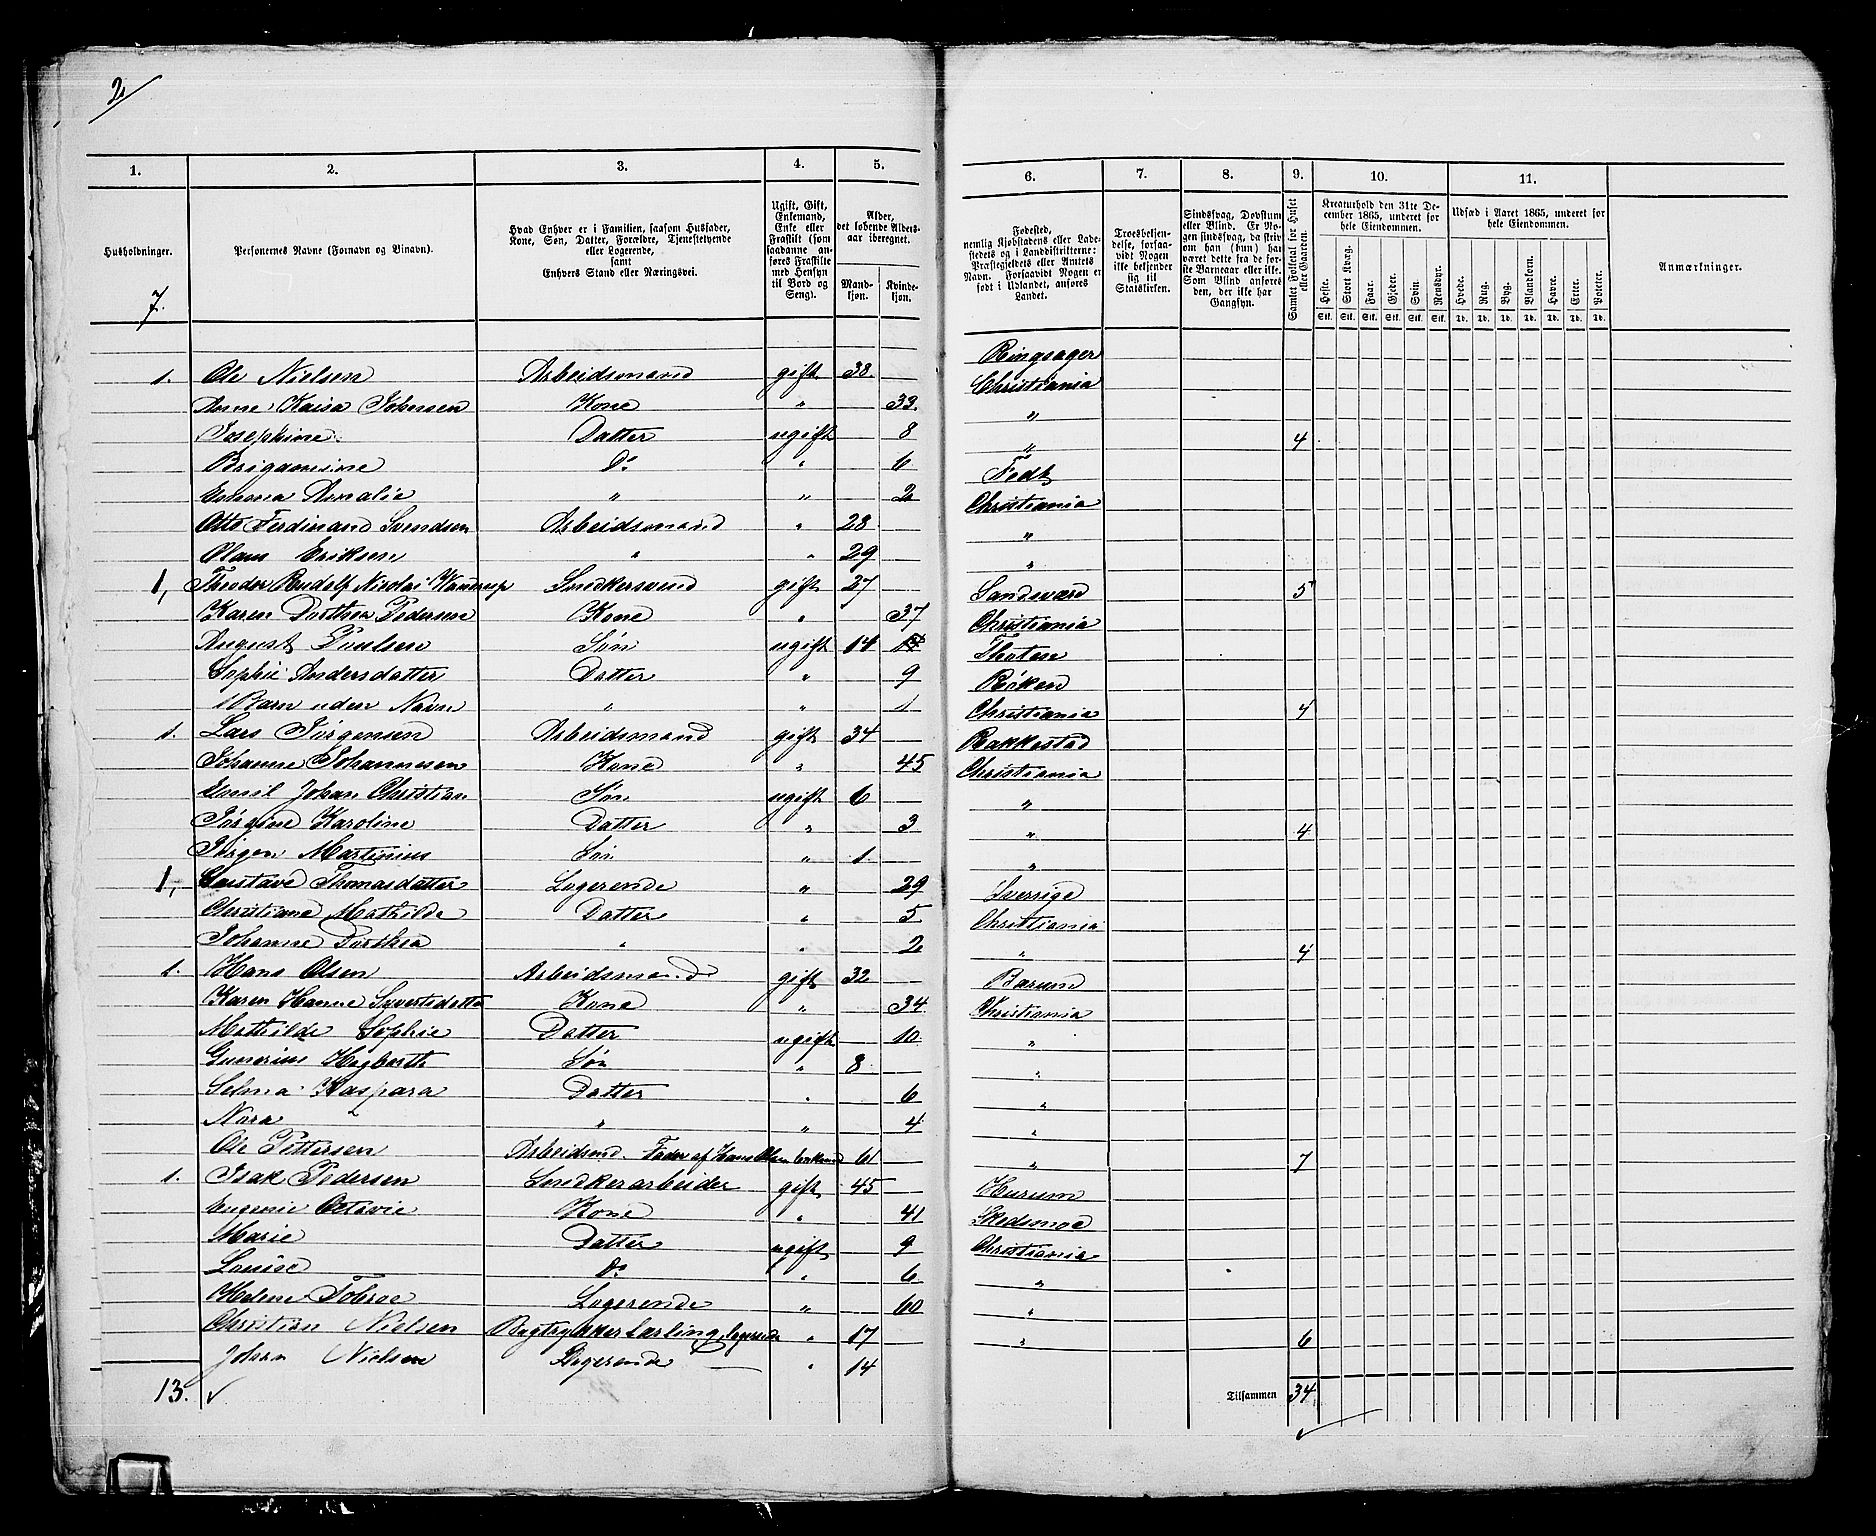 2
1. 2. 3. 4. 5. 6. 7. 8. 9. 10. 11.
Husholdninger.
Personernes Navne (Fornavn og Tilnavn).
Hvad Enhver er i Familien, saasom Husfader, Kone, Søn, Datter, Forældre, Tjenestetyende eller Logerende, samt Enhvers Stand eller Næringsvei.
Ugift, Gift, Enkemand, Enke eller Fraskilt (som saadanne anføres Fraskilte med Hensyn til Bord og Seng).
Alder, det løbende Aldersaar iberegnet.
Mandkjøn. Kvindekjøn.
Fødested, nemlig Kjøbstadens eller Ladestedets og i Landdistrikterne: Præstegjeldets eller Amtets Navn. Forsaavidt Nogen er født i Udlandet, anføres Landet.
Troesbekjendelse, forsaavidt Nogen ikke bekjender sig til Statskirken.
Sindssvag, Døvstum eller Blind. Er Nogen sindssvag, da skrives om han (hun) har været dette fra de første Barneaar eller ikke. Som Blind anføres den, der ikke har Gangsyn.
Samlet Folketal for Huset eller Gaarden.
Kreaturhold den 31te December 1865, underet for hele Eiendommen.
Heste. Stort Kvæg. Faar. Gjeder. Svin. Rensdyr.
Stk. Stk. Stk. Stk. Stk. Stk.
Udsæd i Aaret 1865, underet for hele Eiendommen.
Hvede. Rug. Byg. Blandkorn. Havre. Erter. Poteter.
Td. Td. Td. Td. Td. Td. Td.
Anmærkninger.
7.
1. Ole Nielsen Arbeidsmand gift 38. Ringsager
Anne Kaisa Johnsen Kone " 33. Christiania
Josephine Datter ugift 8 "
Do " 6 " 4
Emma Amalie " " 2 Fedt
Otto Ferdinand Svendsen Arbeidsmand " 28 Christiania
Olaus Eriksen " " 29 "
1, Theodor Rudolf Nicolai Snedkersvend gift 27 "
Karen Dorthea Pedersen Kone " 37 Sandsværd 5
August Poulsen Søn ugift 14 Christiania
Sophie Andersdatter Datter " 9 Thoten
1 Barn uden Navn " " 1 Røken
1. Lars Jørgensen Arbeidsmand gift 34 Christiania 4
Johanne Johannesen Kone " 45 Rakkestad
Emil Johan Christian Søn ugift 6 Christiania
Jørgine Karoline Datter " 3 "
Jørgen Martinius Søn " 1. " 4
1, Gustave Thomasdatter Logerende " 29 "
Christiane Mathilde Datter " 5 Sverrige
Johanne Dorthea " " 2 Christiania
1. Hans Olsen Arbeidsmand gift 32 " 4
Karen Hanne Syvertsdatter Kone " 34 Bærum
Mathilde Sophie Datter ugift 10 Christiania
Gunerius Hegbarth Søn " 8 "
Selma Kaspara Datter " 6 "
Nora " " 4 "
Ole Pettersen Arbeidsmd. Fader af Hans Olsen Enkemd 61 "
1. Isak Pedersen Snedkerarbeider gift 45 " 7
Eugenie Octavie Kone " 41 Hurum
Marie Datter ugift 9 Skedsmoe
Louise Do " 6 Christiania
Helene Logerende " 60 "
Christian Nielsen Lærling, logerende " 17 "
Johan Nielsen Logerende " 14 " 6
13. Tilsammen 34